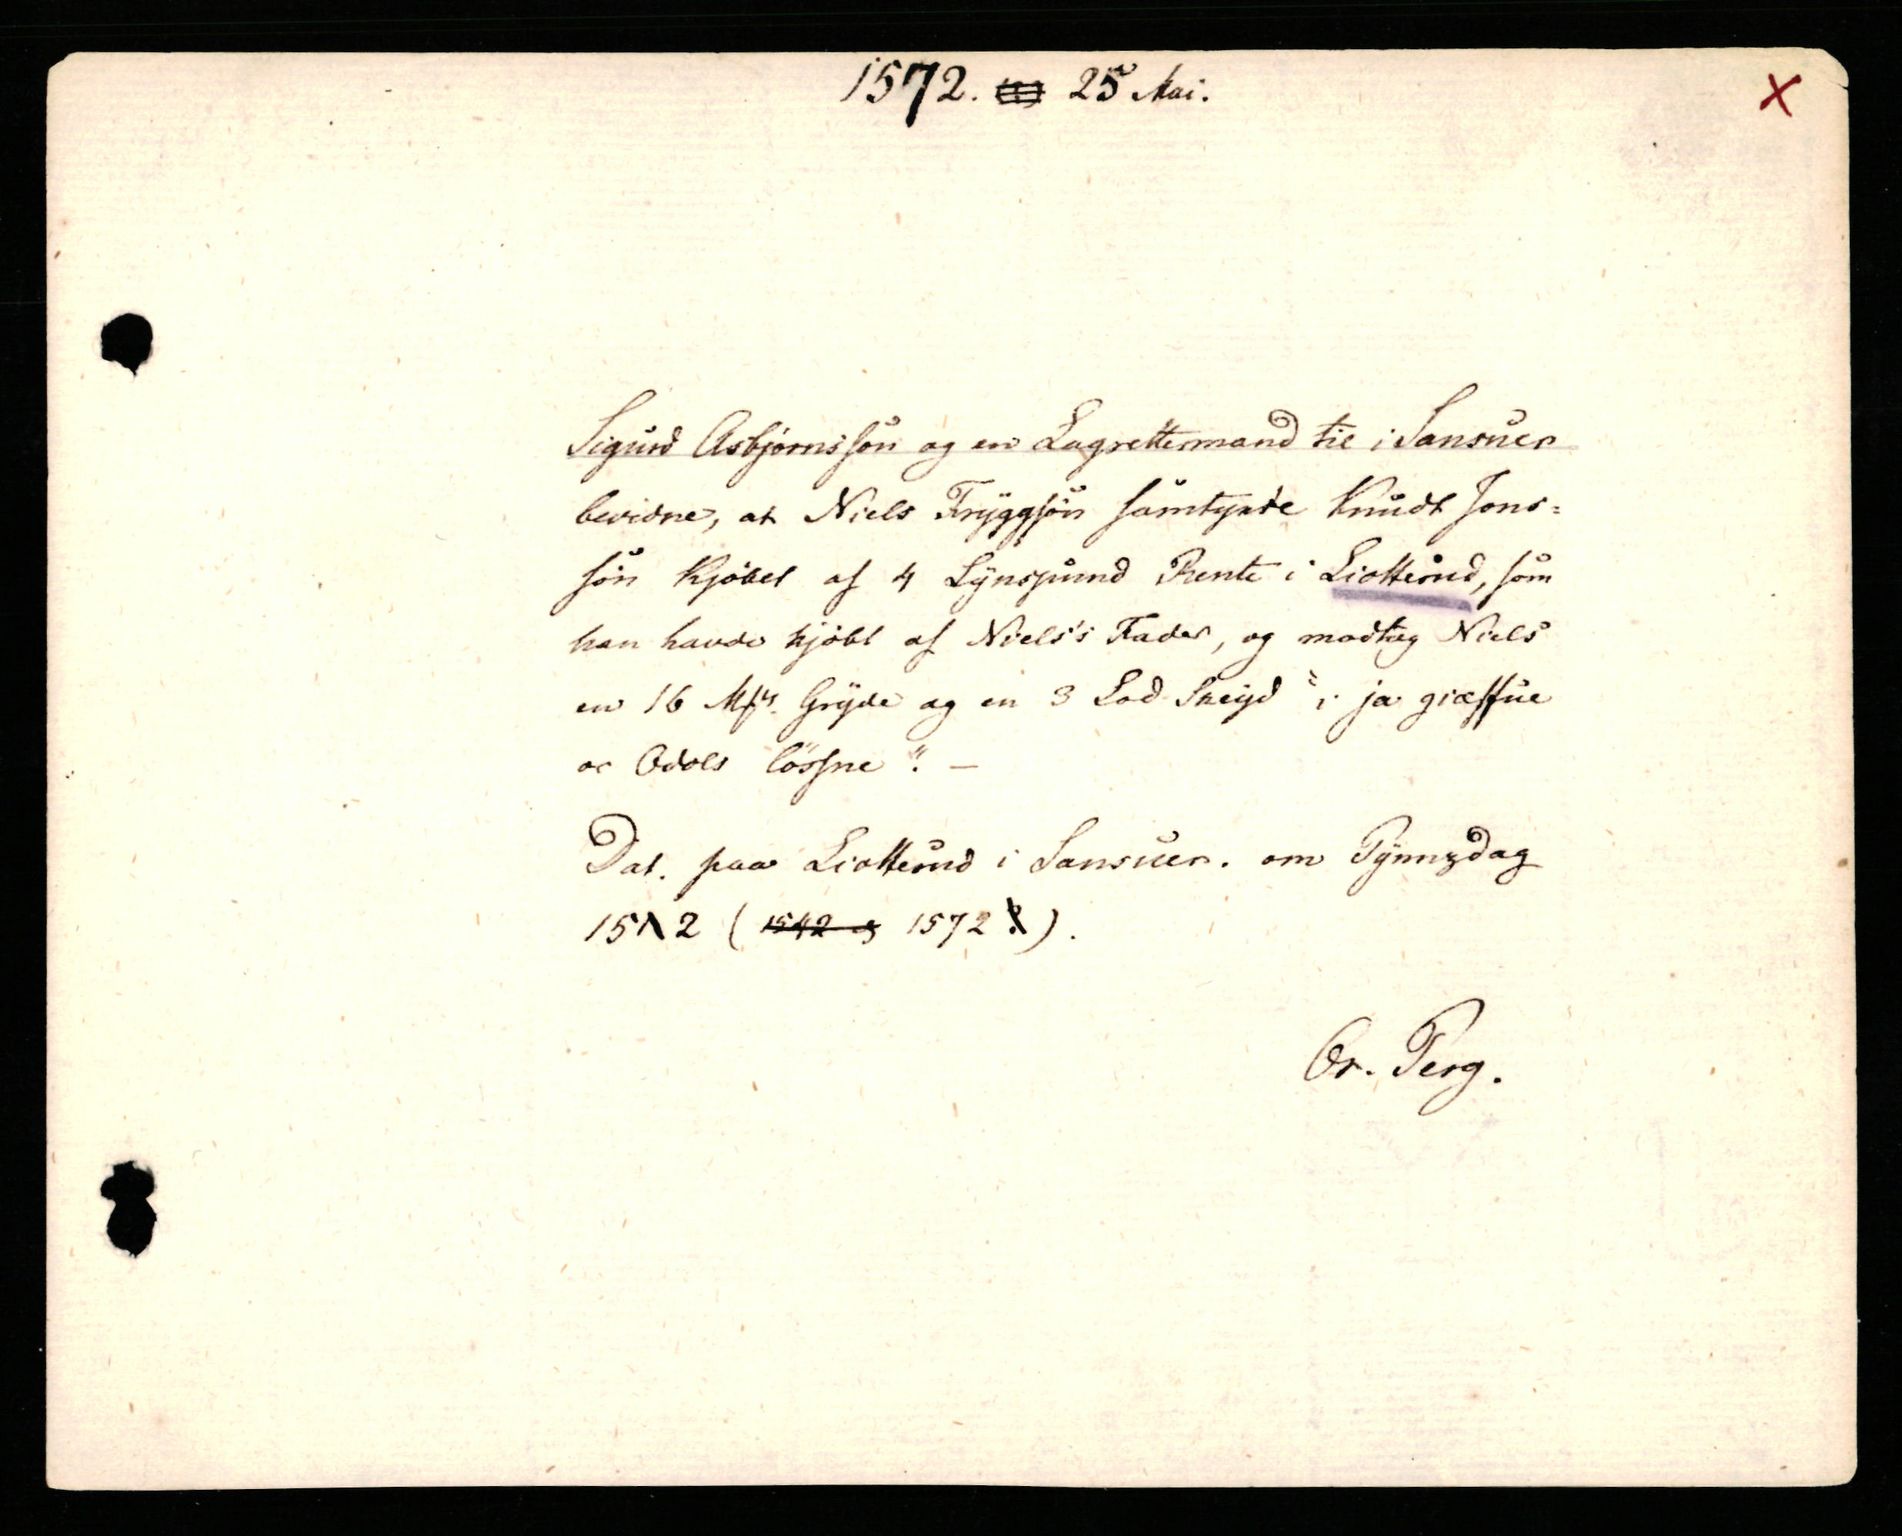 1572. 25 Mai.
X
Sigurd Asbjørnssøn og en Lagrettemand til i Sansuer
bevidne, at Niels Tryggsøn samtykte Knudt Jons=
søn Kjøbet af 4 Lynspund Rente i Liotterud, som
han havde kjøbt af Niels's Fader, og modtog Niels
en 16 Mk's Gryde og en 3 Lod Skeyd "i ja giæffue
oc Odols løssne". —
Dat. paa Liotterud i Sansuer. om Pynnzdag
15Λ2 (1542 og 1572).
Or. Perg.